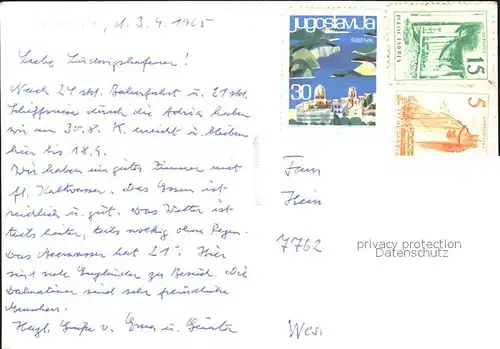 , d. 3.9.1965
Liebe Ludwigshafener!
Nach 24 std. Bahnfahrt u. 21 std.
Schiffsreise durch die Adria haben
wir am 30.8. K. erreicht u. bleiben
hier bis 18.9.
Wir haben ein gutes Zimmer mit
fl. Kaltwasser. Das Essen ist
reichlich u. gut. Das Wetter ist
teils heiter, teils wolkig ohne Regen.
Das Meerwasser hat 21°. Hier
sind viele Engländer zu Besuch. Die
Dalmatiner sind sehr freundliche
Menschen.
Herzl. Grüße v. Erna u. Günter
jugoslavija
ŠIBENIK
30
15
JUGOSLAVIJA
5
Fam
Hein
7762
privacy protection
Datenschutz